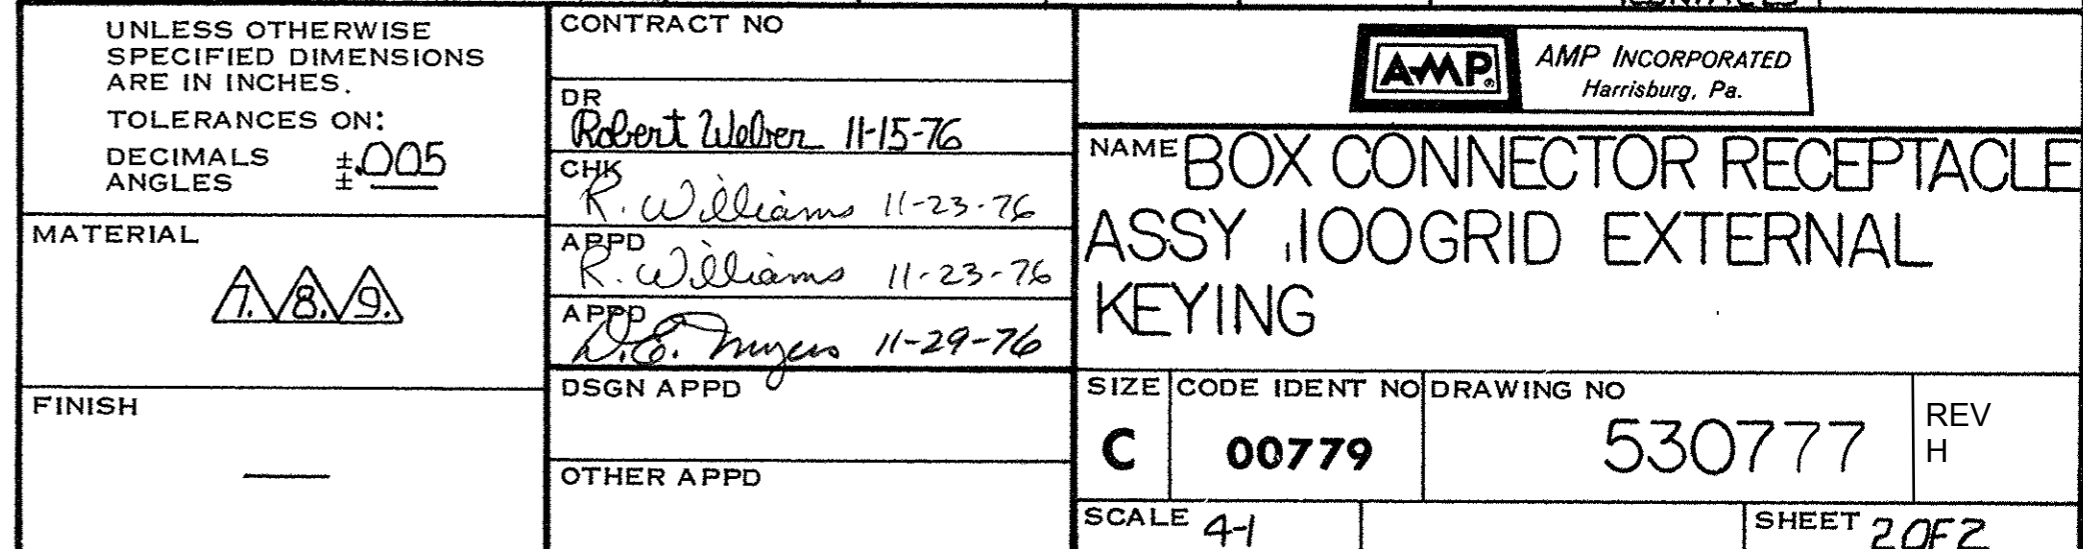 UNLESS OTHERWISE
SPECIFIED DIMENSIONS
ARE IN INCHES.
TOLERANCES ON:
DECIMALS ±.005
ANGLES ±
MATERIAL
7. 8. 9.
FINISH
—
CONTRACT NO
DR
Robert Weber 11-15-76
CHK
R. Williams 11-23-76
APPD
R. Williams 11-23-76
APPD
D.E. Myers 11-29-76
DSGN APPD
OTHER APPD
AMP
AMP INCORPORATED
Harrisburg, Pa.
NAME BOX CONNECTOR RECEPTACLE
ASSY .100 GRID EXTERNAL
KEYING
SIZE
C
CODE IDENT NO
00779
DRAWING NO
530777
REV
H
SCALE 4-1
SHEET 2 OF 2